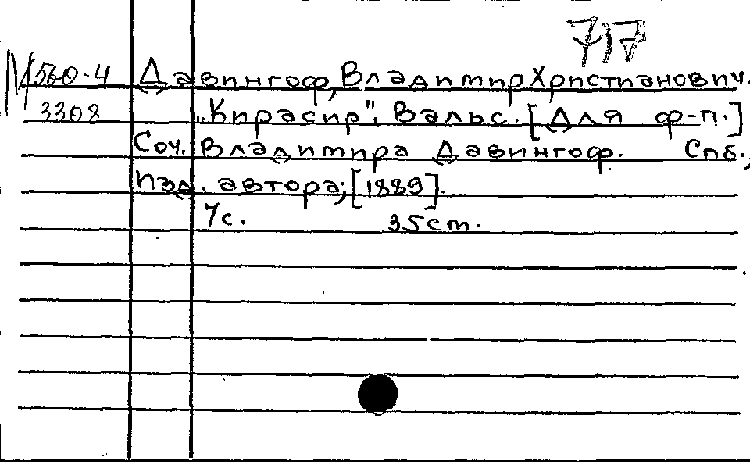 717
М 560-4 Давингоф, Владимир Христианович.
3308 „Кирасир". Вальс. [Для ф-п.]
Соч. Владимира Давингоф. Спб.,
Изд. автора, [1889].
7с. 35см.